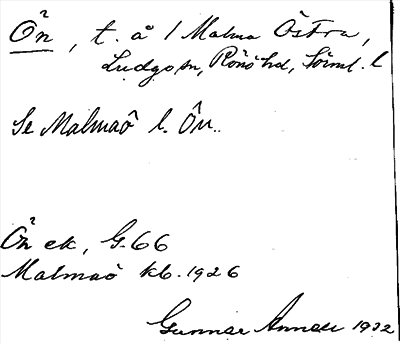 Ön, t. å 1 Malma Östra,
Ludgo sn, Rönö hd, Söml. l
Se Malmaö l. Ön.
Ön ek, G. 66
Malmaö kb. 1926
Gunnar 1932